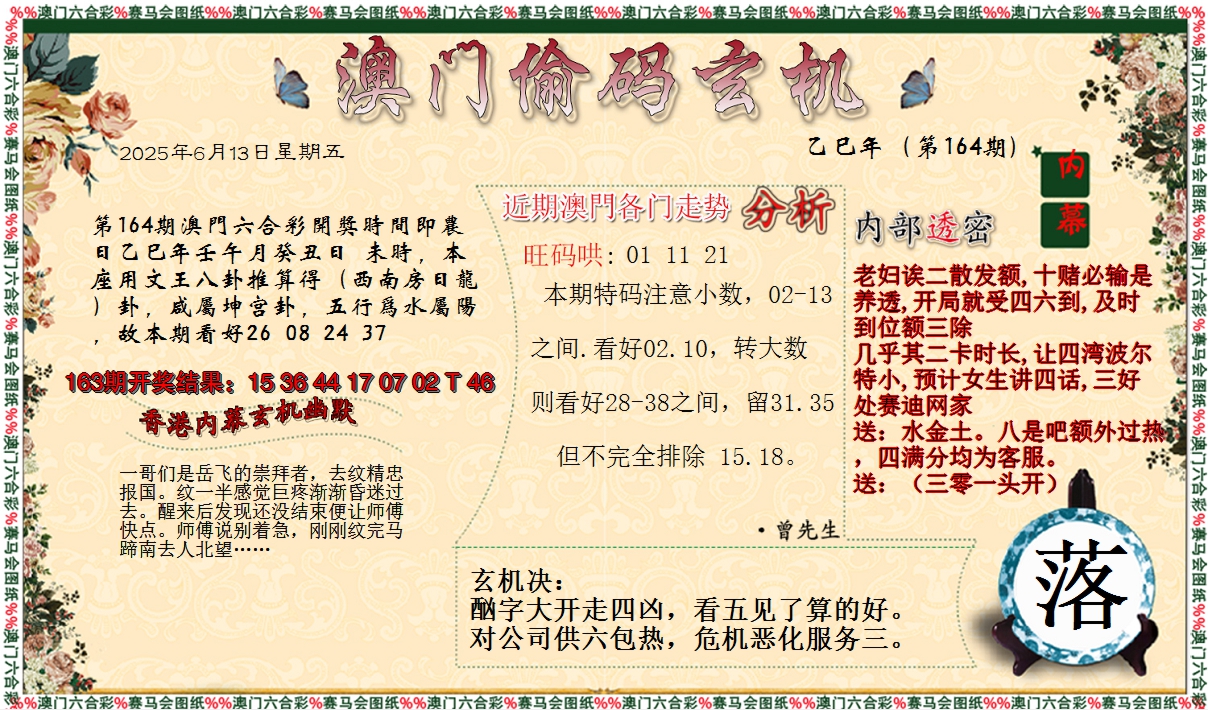 %%澳门六合彩%赛马会图纸%%澳门六合彩%赛马会图纸%%澳门六合彩%赛马会图纸%%澳门六合彩%赛马会图纸%%澳门六合彩%赛马会图纸%%澳门六合彩%赛马会图纸%%
澳门偷码玄机
2025年6月13日星期五
乙巳年（第164期）
内幕
第164期澳門六合彩開獎時間即農
日乙巳年壬午月癸丑日 未時，本
座用文王八卦推算得（西南房日龍
）卦，咸屬坤宫卦，五行爲水屬陽
，故本期看好26 08 24 37
163期开奖结果：15 36 44 17 07 02 T 46
香港内幕玄机幽默
一哥们是岳飞的崇拜者，去纹精忠
报国。纹一半感觉巨疼渐渐昏迷过
去。醒来后发现还没结束便让师傅
快点。师傅说别着急，刚刚纹完马
蹄南去人北望……
近期澳門各门走势 分析
旺码哄: 01 11 21
本期特码注意小数，02-13
之间.看好02.10，转大数
则看好28-38之间，留31.35
但不完全排除 15.18。
·曾先生
内部透密
老妇诶二散发额,十赌必输是
养透,开局就受四六到,及时
到位额三除
几乎其二卡时长,让四湾波尔
特小,预计女生讲四话,三好
处赛迪网家
送：水金土。八是吧额外过热
，四满分均为客服。
送：（三零一头开）
玄机决：
酗字大开走四凶，看五见了算的好。
对公司供六包热，危机恶化服务三。
落
%%澳门六合彩%赛马会图纸%%澳门六合彩%赛马会图纸%%澳门六合彩%赛马会图纸%%澳门六合彩%赛马会图纸%%澳门六合彩%赛马会图纸%%澳门六合彩%赛马会图纸%%